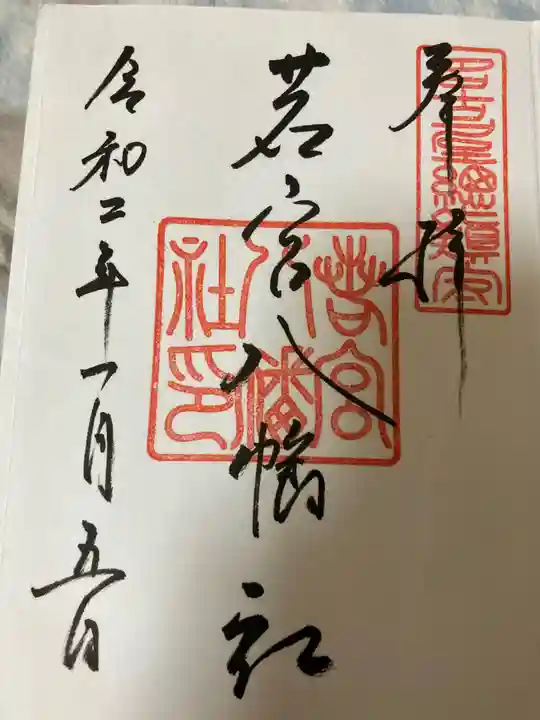 奉拝
若宮八幡社
令和二年一月五日
若宮
八幡
社印